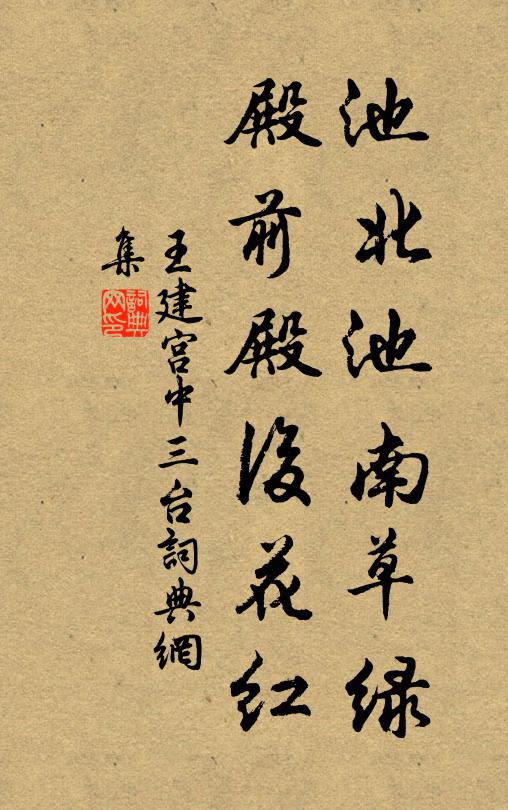 池北池南草绿
殿前殿後花红
王建宫中三台詞典網
集
詞典网印